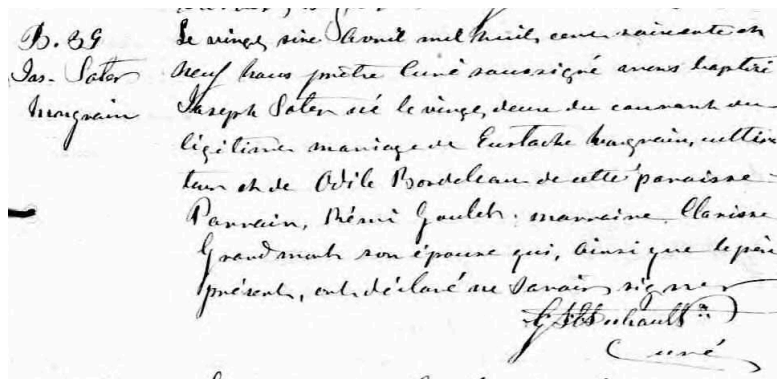 B. 29
Jos. Soter
Mongrain
Le vingt six Avril mil huit cent soixante et
neuf nous prêtre curé soussigné avons baptisé
Joseph Soter né le vingt deux du courant du
légitime mariage de Eustache Mongrain, cultiva
teur et de Odile Bordeleau de cette paroisse
Parrain, Rémi Goulet. marraine Clarisse
Grandmont son épouse qui, ainsi que le père
présent, ont déclaré ne savoir signer
Curé